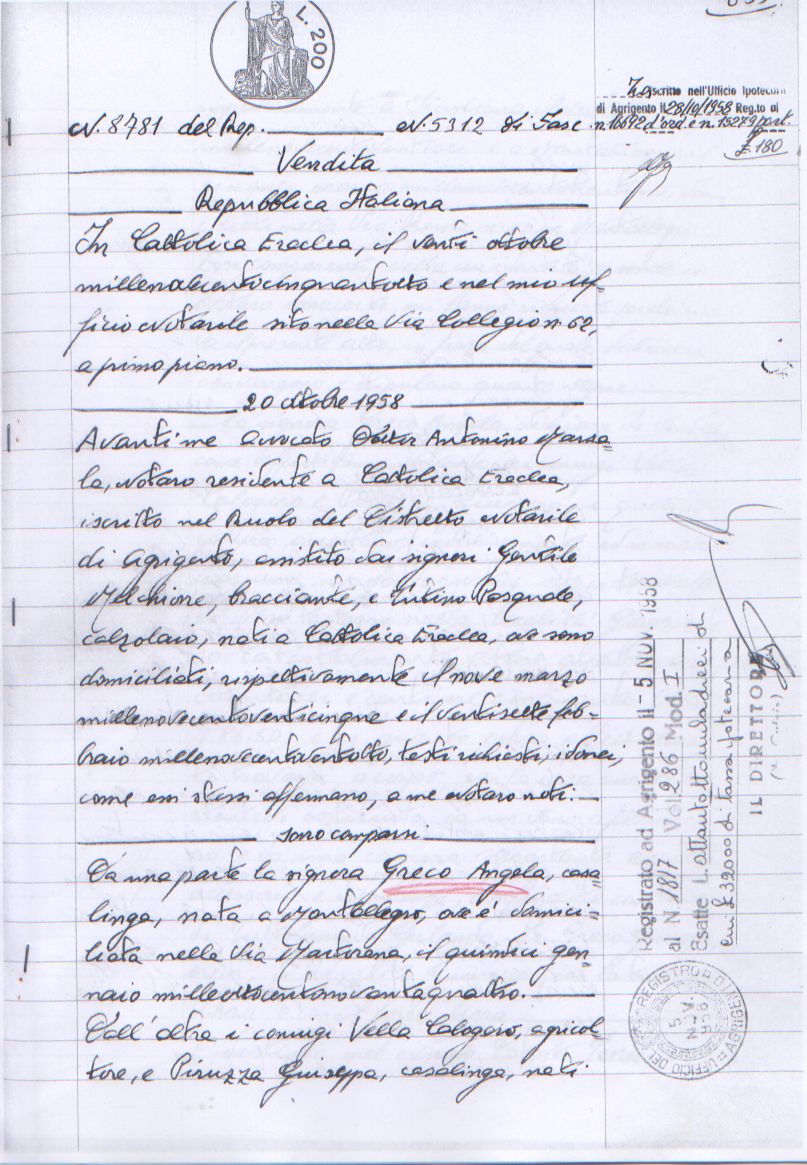 L. 200
Trascritto nell'Ufficio Ipotecario
di Agrigento il 28/10/1958 Reg.to al
n. 16672 d'ord. e n. 15279 part.
£. 180
N. 8781 del Rep. N. 5312 di Fasc.
Vendita
Repubblica Italiana
In Cattolica Eraclea, il venti ottobre
millenovecentocinquantotto e nel mio uf-
ficio notarile sito nella Via Collegio n. 62,
a primo piano.
20 ottobre 1958
Avanti me avvocato Dottor Antonino Marsa-
la, notaro residente a Cattolica Eraclea,
iscritto nel Ruolo del Distretto notarile
di Agrigento, assistito dai signori Gentile
Melchiore, bracciante, e Tutino Pasquale,
calzolaio, nati a Cattolica Eraclea, ove sono
domiciliati, rispettivamente il nove marzo
millenovecentoventicinque e il ventisette feb-
braio millenovecentoventotto, testi richiesti, idonei,
come essi stessi affermano, a me notaro noti.
sono comparsi
Da una parte la signora Greco Angela, casa-
linga, nata a Montallegro, ove è domici-
liata nella Via Martorana, il quindici gen-
naio milleottocentonovantaquattro.
Dall'altra i coniugi Vella Calogero, agricol-
tore, e Piruzza Giuseppa, casalinga, nati
Registrato ad Agrigento il - 5 NOV. 1958
al N. 1817 Vol 286 Mod. I
Esatte L. ottantottomiladieci di
cui £ 32000 di tassa ipotecaria
IL DIRETTORE
UFFICIO DEL REGISTRO AGRIGENTO